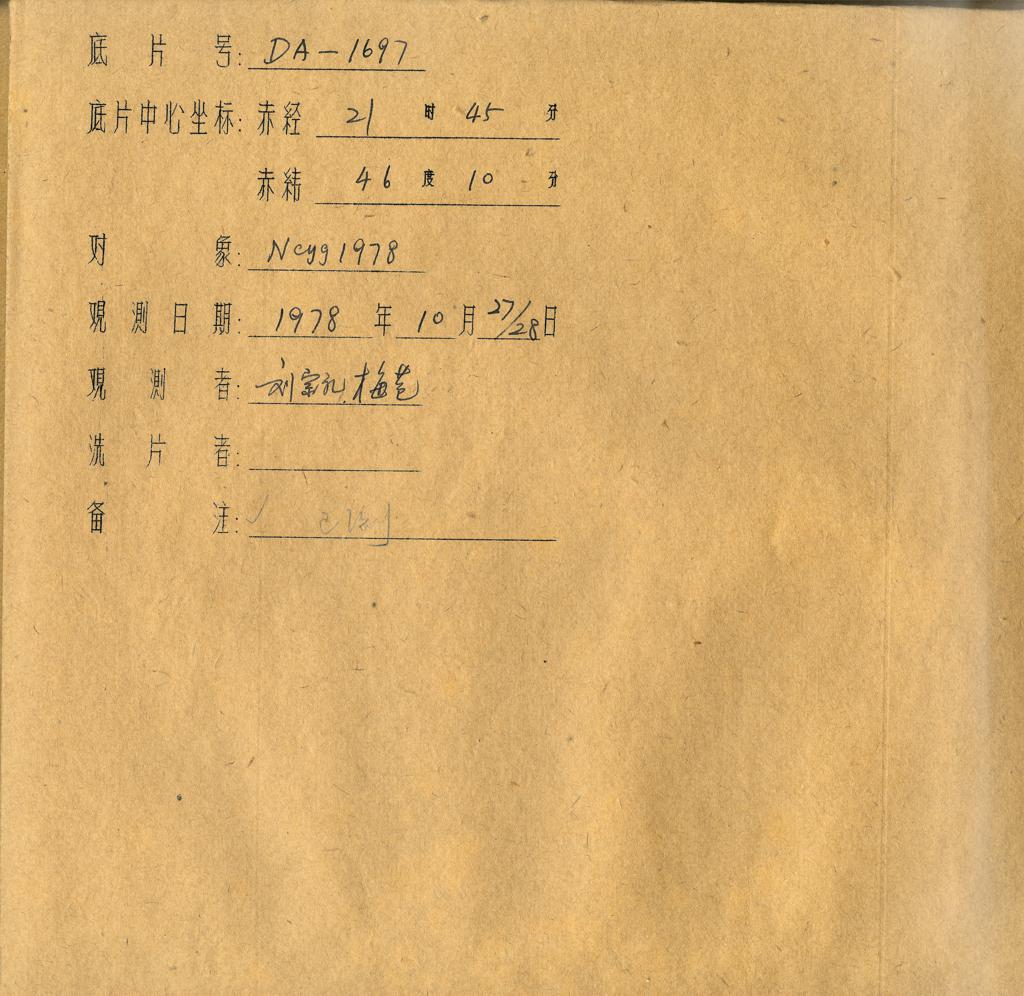 底片号: DA-1697
底片中心坐标: 赤经 21 时 45 分
赤纬 46 度 10 分
对象: Ncyg1978
观测日期: 1978 年 10 月 27/28 日
观测者: 刘宗礼, 梅苞
洗片者:
备注: ✓ 已测